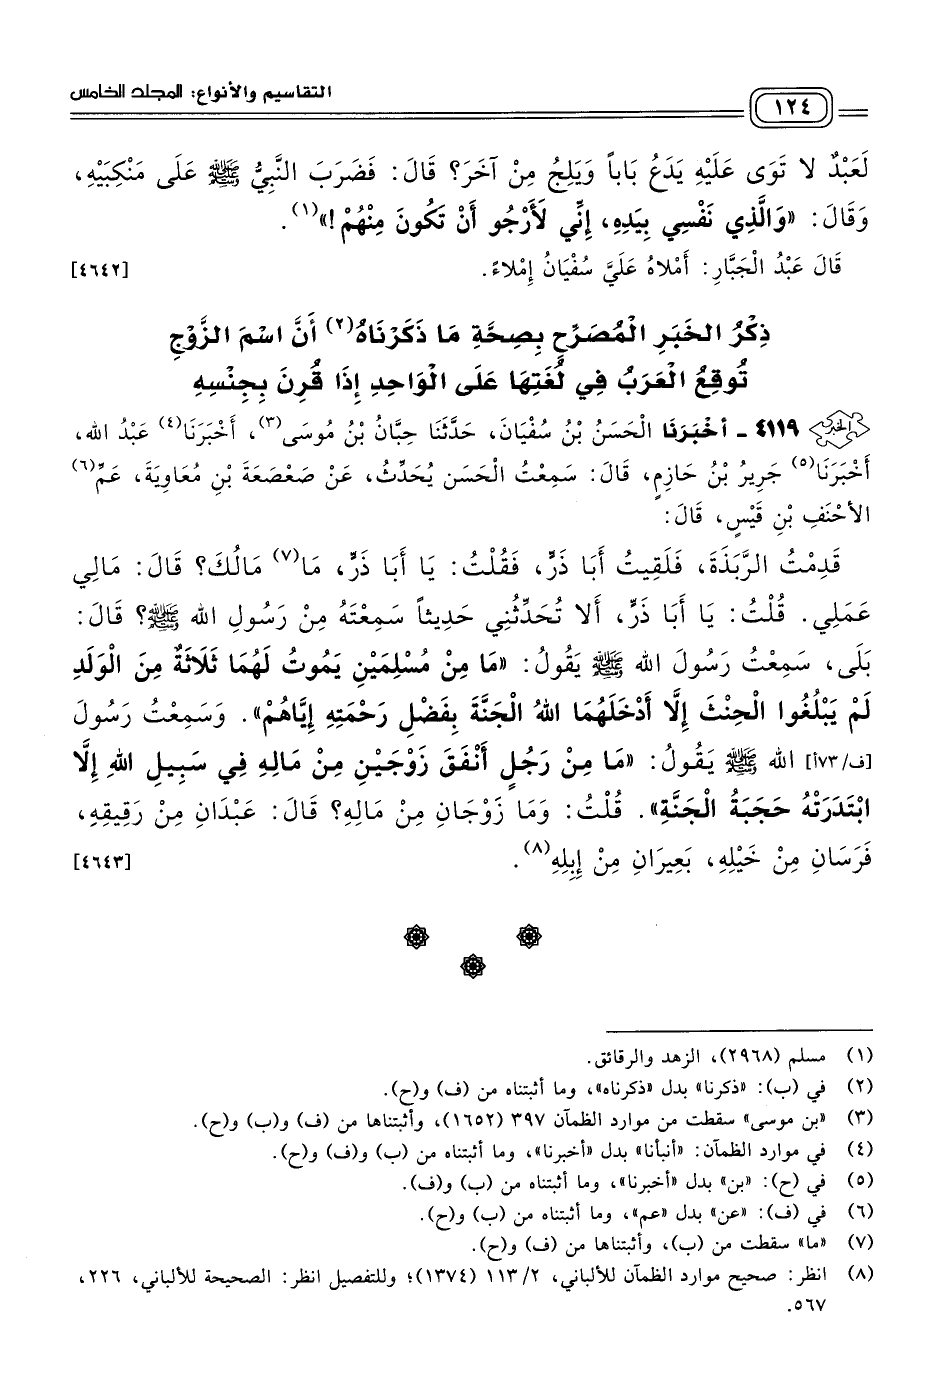 ١٢٤
التقاسيم والأنواع: المجلد الخامس
لَعَبْدٌ لا تَوَى عَلَيْهِ يَدَعُ بَاباً وَيَلِجُ مِنْ آخَرَ؟ قَالَ: فَضَرَبَ النَّبِيُّ ﷺ عَلَى مَنْكِبَيْهِ،
وَقَالَ: «وَالَّذِي نَفْسِي بِيَدِهِ، إِنِّي لَأَرْجُو أَنْ تَكُونَ مِنْهُمْ!»(١).
قَالَ عَبْدُ الْجَبَّارِ: أَمْلاهُ عَلَيَّ سُفْيَانُ إِمْلاءً. [٤٦٤٢]
ذِكْرُ الخَبَرِ الْمُصَرِّحِ بِصِحَّةِ مَا ذَكَرْنَاهُ(٢) أَنَّ اسْمَ الزَّوْجِ
تُوقِعُ الْعَرَبُ فِي لُغَتِهَا عَلَى الْوَاحِدِ إِذَا قُرِنَ بِجِنْسِهِ
٤١١٩ - أَخْبَرَنَا الْحَسَنُ بْنُ سُفْيَانَ، حَدَّثَنَا حِبَّانُ بْنُ مُوسَى(٣)، أَخْبَرَنَا(٤) عَبْدُ الله،
أَخْبَرَنَا(٥) جَرِيرُ بْنُ حَازِمٍ، قَالَ: سَمِعْتُ الْحَسَن يُحَدِّثُ، عَنْ صَعْصَعَةَ بْنِ مُعَاوِيَةَ، عَمِّ(٦)
الأَحْنَفِ بْنِ قَيْسٍ، قَالَ:
قَدِمْتُ الرَّبَذَةَ، فَلَقِيتُ أَبَا ذَرٍّ، فَقُلْتُ: يَا أَبَا ذَرٍّ، مَا(٧) مَالُكَ؟ قَالَ: مَالِي
عَمَلِي. قُلْتُ: يَا أَبَا ذَرٍّ، أَلا تُحَدِّثُنِي حَدِيثاً سَمِعْتَهُ مِنْ رَسُولِ الله ﷺ؟ قَالَ:
بَلَى، سَمِعْتُ رَسُولَ الله ﷺ يَقُولُ: «مَا مِنْ مُسْلِمَيْنِ يَمُوتُ لَهُمَا ثَلَاثَةٌ مِنَ الْوَلَدِ
لَمْ يَبْلُغُوا الْحِنْثَ إِلَّا أَدْخَلَهُمَا اللهُ الْجَنَّةَ بِفَضْلِ رَحْمَتِهِ إِيَّاهُمْ». وَسَمِعْتُ رَسُولَ
[ف/٧٣أ] الله ﷺ يَقُولُ: «مَا مِنْ رَجُلٍ أَنْفَقَ زَوْجَيْنِ مِنْ مَالِهِ فِي سَبِيلِ اللهِ إِلَّا
ابْتَدَرَتْهُ حَجَبَةُ الْجَنَّةِ». قُلْتُ: وَمَا زَوْجَانِ مِنْ مَالِهِ؟ قَالَ: عَبْدَانِ مِنْ رَقِيقِهِ،
فَرَسَانِ مِنْ خَيْلِهِ، بَعِيرَانِ مِنْ إِبِلِهِ(٨). [٤٦٤٣]
(١) مسلم (٢٩٦٨)، الزهد والرقائق.
(٢) في (ب): «ذكرنا» بدل «ذكرناه»، وما أثبتناه من (ف) و(ح).
(٣) «بن موسى» سقطت من موارد الظمآن ٣٩٧ (١٦٥٢)، وأثبتناها من (ف) و(ب) و(ح).
(٤) في موارد الظمآن: «أنبأنا» بدل «أخبرنا»، وما أثبتناه من (ب) و(ف) و(ح).
(٥) في (ح): «بن» بدل «أخبرنا»، وما أثبتناه من (ب) و(ف).
(٦) في (ف): «عن» بدل «عم»، وما أثبتناه من (ب) و(ح).
(٧) «ما» سقطت من (ب)، وأثبتناها من (ف) و(ح).
(٨) انظر: صحيح موارد الظمآن للألباني، ٢/ ١١٣ (١٣٧٤)؛ وللتفصيل انظر: الصحيحة للألباني، ٢٢٦،
٥٦٧.